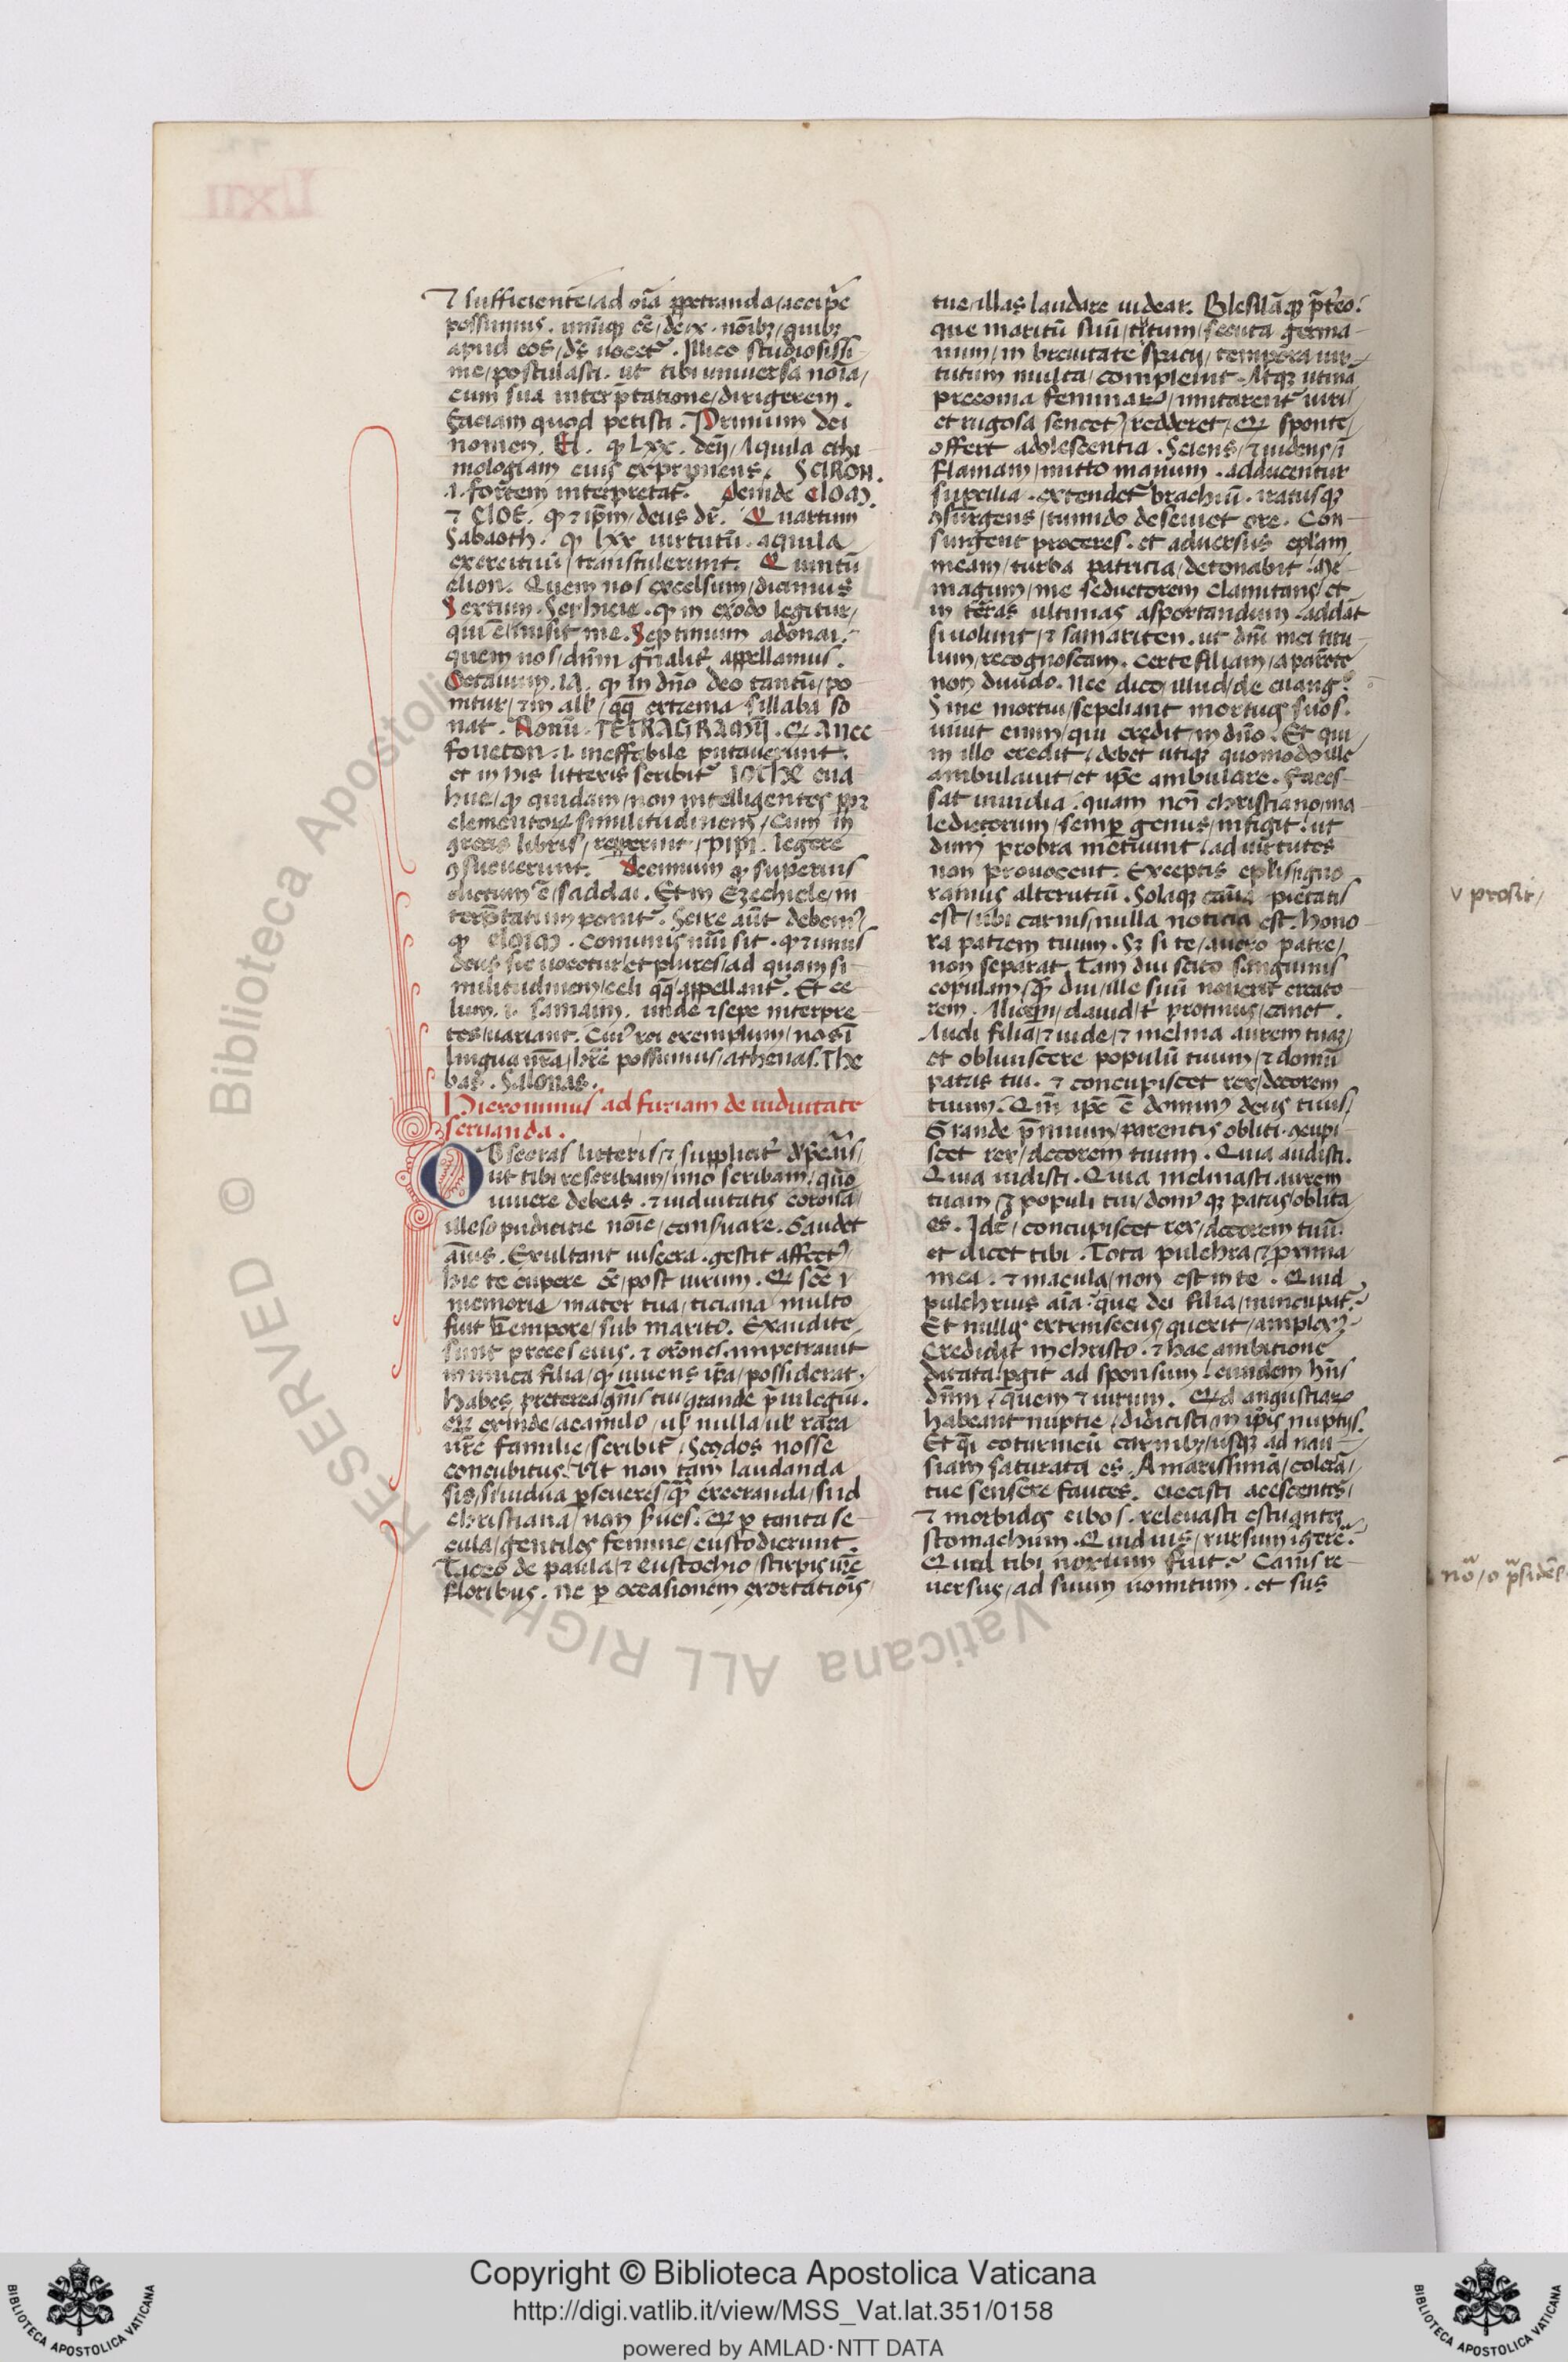 ⁊ sufficiente/ad oīa ꝑpetranda/accipͤe
possumus. unūqꝫ eē/de.x. noībꝫ/quibꝫ
apud eos/ds̄ uocet᷑. Illico studiosissi-
me/postulasti. ut tibi uniuersa noīa/
cum sua interp̄tatione/dirigerem.
Faciam quod petisti. Primum dei
nomen. El. qꝫ lxx. deū/Aquila ethi
mologiam eius exprimens. SCIRON.
.i. fortem interpretat᷑. deinde eloim
⁊ eloe. qꝫ ⁊ ip̄m/deus dr̄. Quartum
Sabaoth. qꝫ lxx uirtutū. aquila
exercituū/transtulerunt. Quintū
elion. Quem nos excelsum/dicimus
Sextum. Serhieie. qꝫ in exodo legitur/
qui ē/misit me. Septimum adonai.
quem nos/dn̄m gn̄alit᷑ appellamus.
Octauum. IA. qꝫ in dn̄o deo tantū/po
nitur/⁊ in all'/qq̄ extrema sillaba so
nat. Nonū. TETRAGRAMŪ. Qꝫ ANEC
foneton. .i. ineffabile putauerunt.
et in his litteris scribit᷑ IOTHE eua
hue/qꝫ quidam/non intelligentes ꝓpꝫ
elementoꝝ similitudinem/cum in
grecis libris/repperint/PIPI. legere
ꝯsueuerunt. Decimum qꝫ superius
dictum ē/saddai. Et in Ezechiele/in
terp̄tatum ponit᷑. Scire aūt debem᷒/
qꝫ eloim. comunis nūi sit. qꝫ ⁊ unus
deus sic uocetur/et plures/ad quam si-
militudinem/celi qq̄ appellant᷑. Et ce
lum. i. samaim. unde ⁊ sepe interpre
tes/uariant. Cui᷒ rei exemplum/nos ī
lingua nr̄a/hr̄e possumus/athenas. The
bas. Salonas.
Hieronimus ad furiam de uiduitate
seruanda.
OBsecras litteris/⁊ supplicit᷑ dep̄caris/
ut tibi rescribam/imo scribam/quō
uiuere debeas. ⁊ uiduitatis corona/
illeso pudicitie noīe/conseruare. Gaudet
aīus. Exultant uiscera. gestit affect᷒/
hic te cupere eē/post uirum. Qꝫ scē
memorie/mater tua/ticiana multo
fuit tempore/sub marito. Exaudite
sunt preces eius. ⁊ orōnes. impetrauit
in unica filia/qꝫ uiuens ip̄a/possiderat.
habes preterea/gn̄is tui/grande p̄uilegiū.
Qꝫ exinde/acamilo/ul' nulla/ul' rara
ur̄e familie/scribit᷑/Scd̄os nosse
concubitus. Ut non tam laudanda
sis/si uidua ꝑseueres/qꝫ execranda/si id
christiana/non serues. Qꝫ ꝑ tanta se-
cula/gentiles femine/custodierunt.
Taceo de paula/⁊ Eustochio/stirpis ur̄e
floribus. Ne ꝑ occasionem exortatiōis/
tue/illas laudare uidear. Blesillāqꝫ p̄teo.
que maritū suū/tuum/secuta germa-
num/in breuitate spacij/tempora uir-
tutum multa/compleuit. Atqꝫ utinā
preconia feminaꝝ/imitarent᷑ uiri/
et rugosa senect᷒/redderet/Qꝫ sponte/
offert adolescentia. Sciens/⁊ uidens/ī
flamam/mitto manum. adducentur
suꝑcilia. extendet᷑ brachiū. iratusqꝫ
ꝯsurgens/tumido deseuiet ore. Con-
surgent proceres. et aduersus ep̄lam
meam/turba patricia/detonabit. Me
magum/me seductorem clamitans/et
in terras ultimas asportandum. addāt
si uolunt/⁊ samariten. ut dn̄i mei titu-
lum/recognoscam. Certe filiam/aparēte
non diuido. Nec dico/illud/de euang.
Sine mortui/sepeliant mortuos suos.
uiuit enim/qui credit/in dn̄o. Et qui
in illo credit/debet utiqꝫ quomodo ille
ambulauit/et ip̄e ambulare. Faces-
sat inuidia. quam noī christiano/ma-
ledictorum/semꝑ genus/infigit. ut
dum probra metuunt/ad uirtutes
non prouocent. Exceptis ep̄lis/igno-
ramus alterutrū. Solaqꝫ causa pietatis
est/ubi carnis/nulla noticia est. Hono
ra patrem tuum. Sꝫ si te/auero patre/
non separat. Tam diu scito sanguinis
copulam/qꝫ diu/ille suū nouerit creato
rem. Alioqn̄/dauid/t᷑ protinus/canet.
Audi filia/⁊ uide/⁊ inclina aurem tuaꝫ/
et obliuiscere populū tuum/⁊ domū
patris tui. ⁊ concupiscet rex/decorem
tuum. Qm̄ ip̄e ē domin᷒ deus tuus/
Grande p̄mium/parentis obliti. ꝯcupi-
scet rex/decorem tuum. Quia audisti.
Quia uidisti. Quia inclinasti aurem
tuam/⁊ populi tui/dom᷒qꝫ patris/oblita
es. Idc̄/concupiscet rex/decorem tuū.
et dicet tibi. Tota pulchra/⁊ ꝓxima
mea. ⁊ macula/non est in te. Quid
pulchrius aīa. que dei filia/nuncupat᷑
Et nullos extrinsecus/querit/amplex᷒.
Credidit in christo. ⁊ hac ambitione
ditata/ꝑgit ad sponsum/eundem hn̄s
dn̄m/quem ⁊ uirum. Qꝫd angustiaꝝ
habeant nuptie/didicisti/in ip̄is nuptijs.
Et qͣi coturnicū carnibꝫ/usqꝫ ad nau-
siam saturata es. Amarissima/colerā/
tue sensere fauces. eiecisti acescentes/
⁊ morbidos cibos. releuasti estuantē
stomachum. Quid uis/rursum īgere.
Quod tibi noxium fuit. Canis re-
uersus/ad suum uomitum. et sus
v prosit/
Copyright © Biblioteca Apostolica Vaticana
http://digi.vatlib.it/view/MSS_Vat.lat.351/0158
powered by AMLAD·NTT DATA
BIBLIOTECA APOSTOLICA VATICANA
BIBLIOTECA APOSTOLICA VATICANA
© Biblioteca Apostolica Vaticana ALL RIGHTS RESERVED